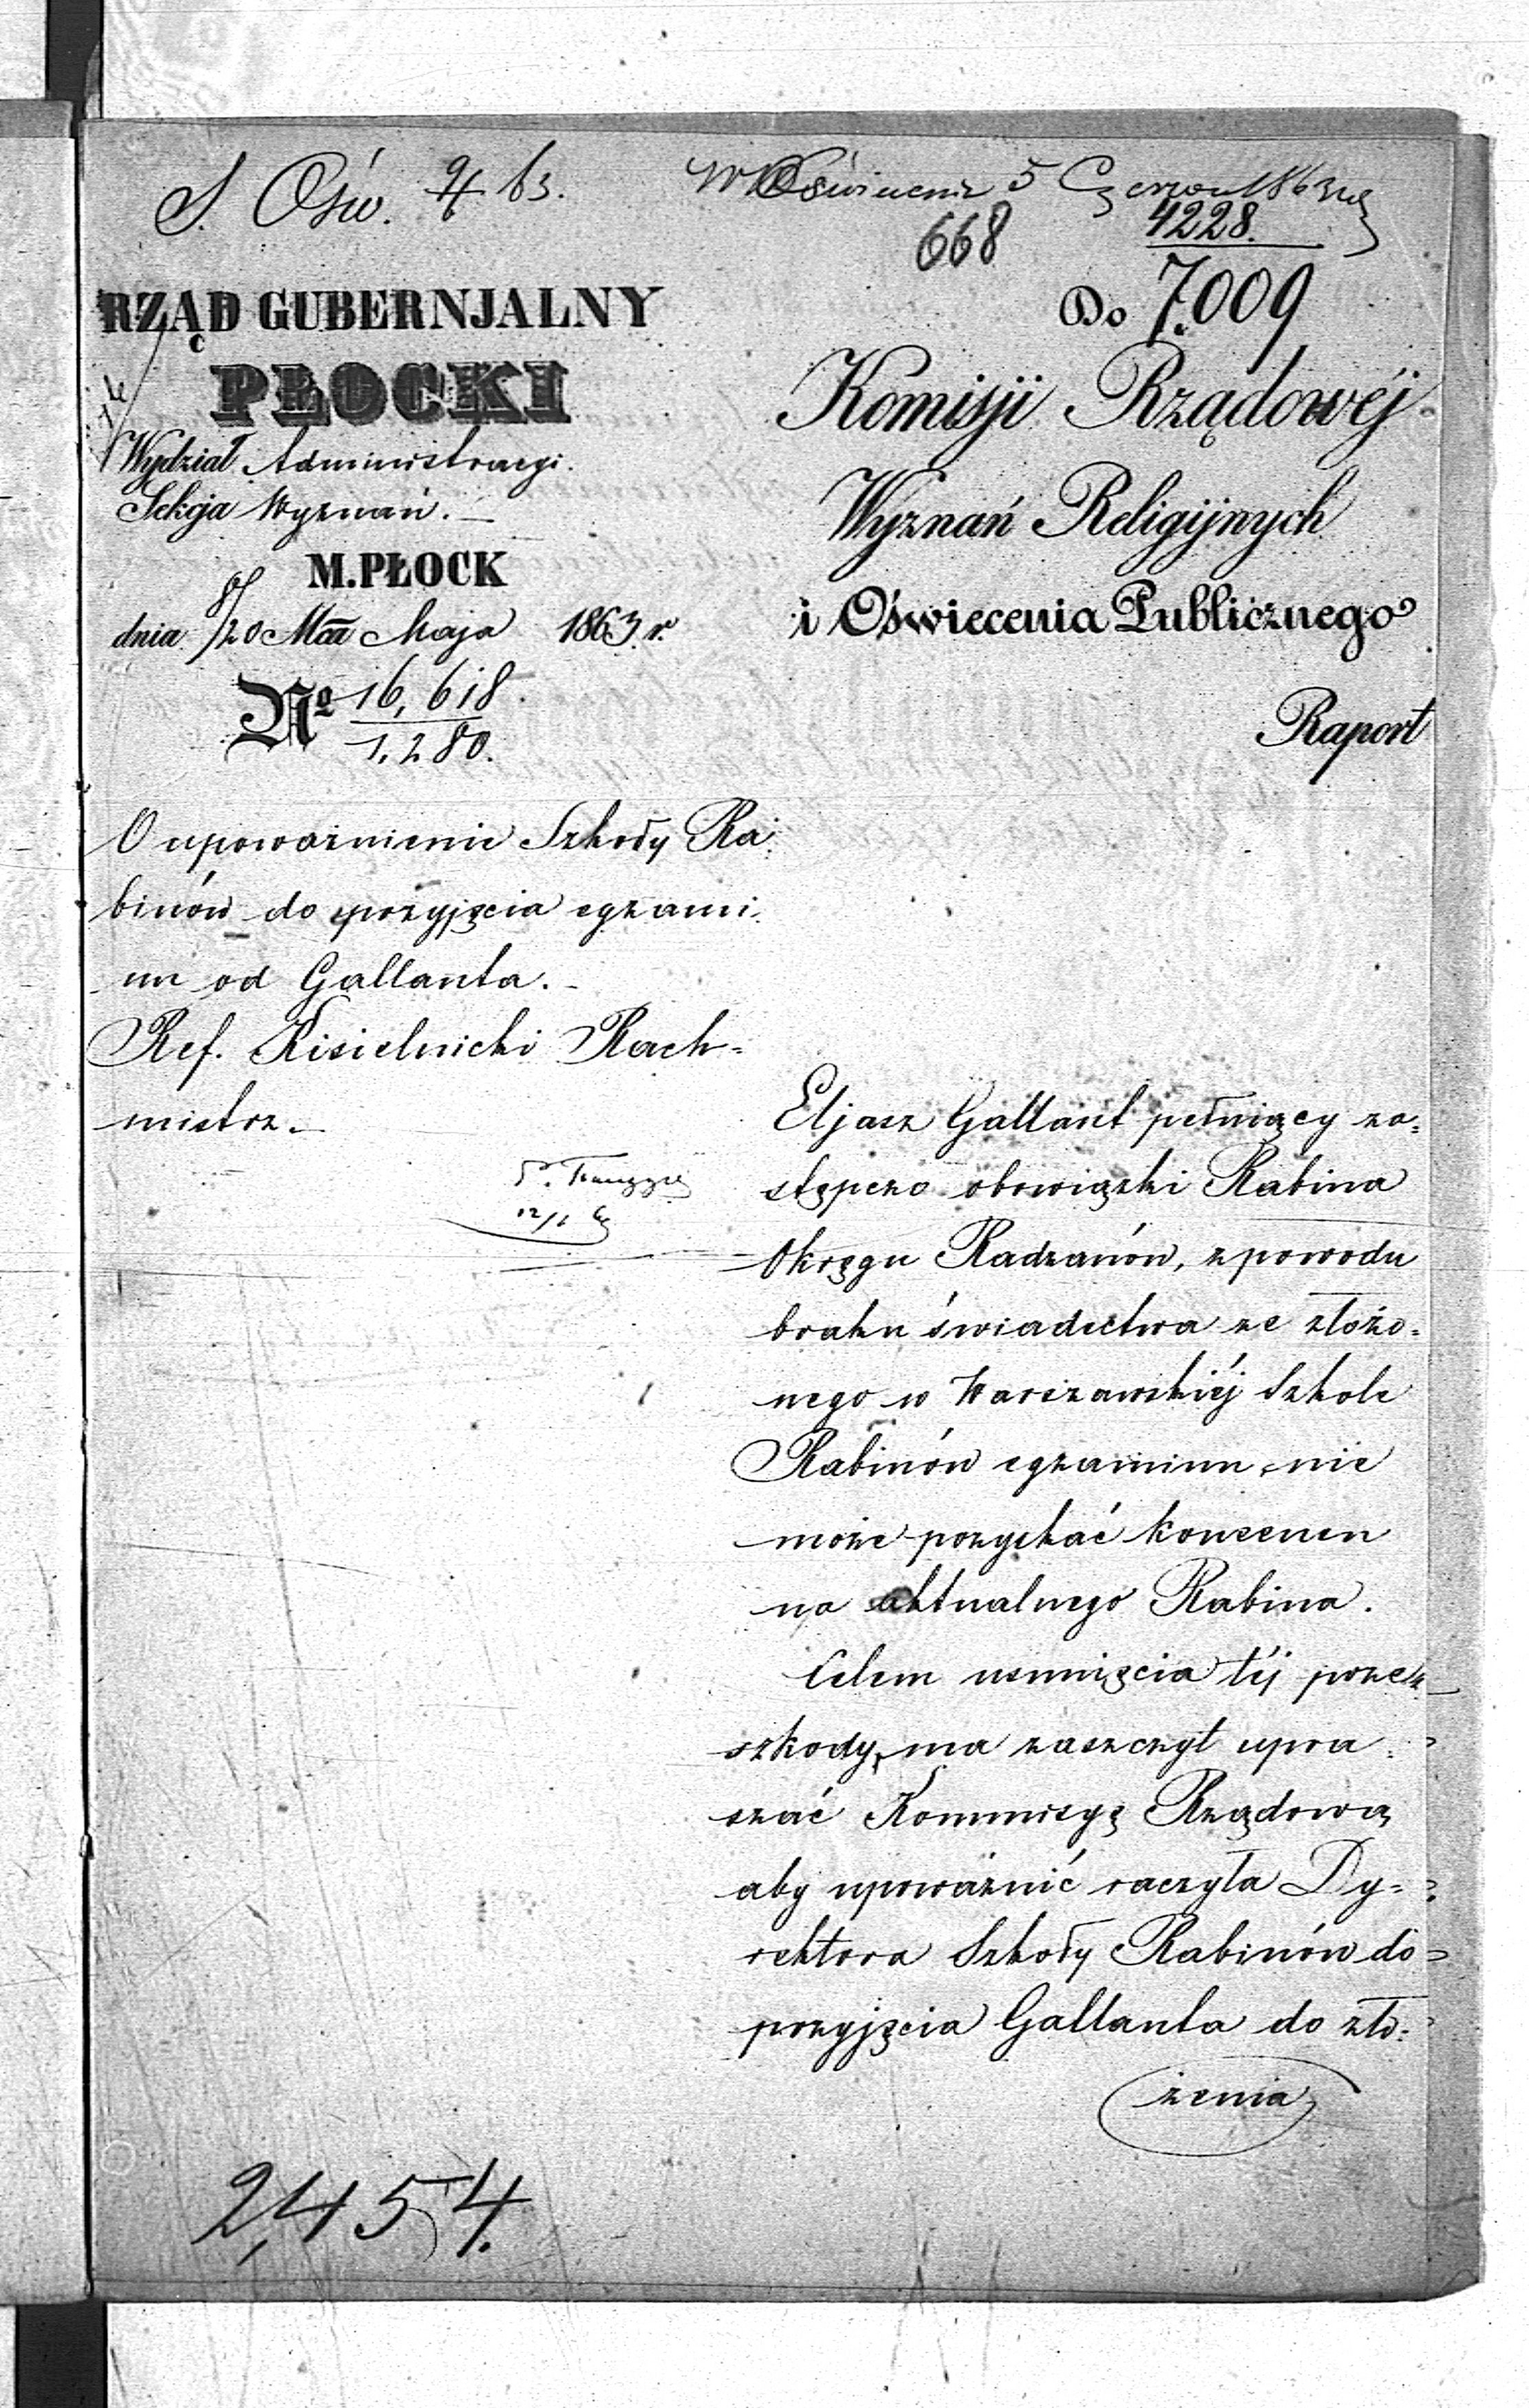 S. Ośw. 9/6 63.
W Oświecenia 5 Czerwca 1863
668
4228.
RZĄD GUBERNJALNY
PŁOCKI
Wydział Administracyi.
Sekcja Wyznań. —
M. PŁOCK
dnia 8/20 Mca Maja 1863 r.
No 16,618.
1,280.
Do 7.009
Komisji Rządowéj
Wyznań Religijnych
i Oświecenia Publicznego
Raport
O upoważnienie Szkoły Ra-
binów do przyjęcia egzami-
nu od Gallanta. -
Ref. Kisielnicki Rach=
mistrz. —
12/6
Eljasz Gallant pełniący za=
stępczo obowiązki Rabina
Okręgu Radzanów, z powodu
braku świadectwa ze złożo=
nego w Warszawskiéj Szkole
Rabinów egzaminu, nie
może pozyskać konsensu
na aktualnego Rabina.
Celem usunięcia téj prze-
szkody, ma zaszczyt upra=
szać Kommisyę Rządową
aby upoważnić raczyła Dy=
rektora Szkoły Rabinów do
przyjęcia Gallanta do zło=
żenia
2,454.